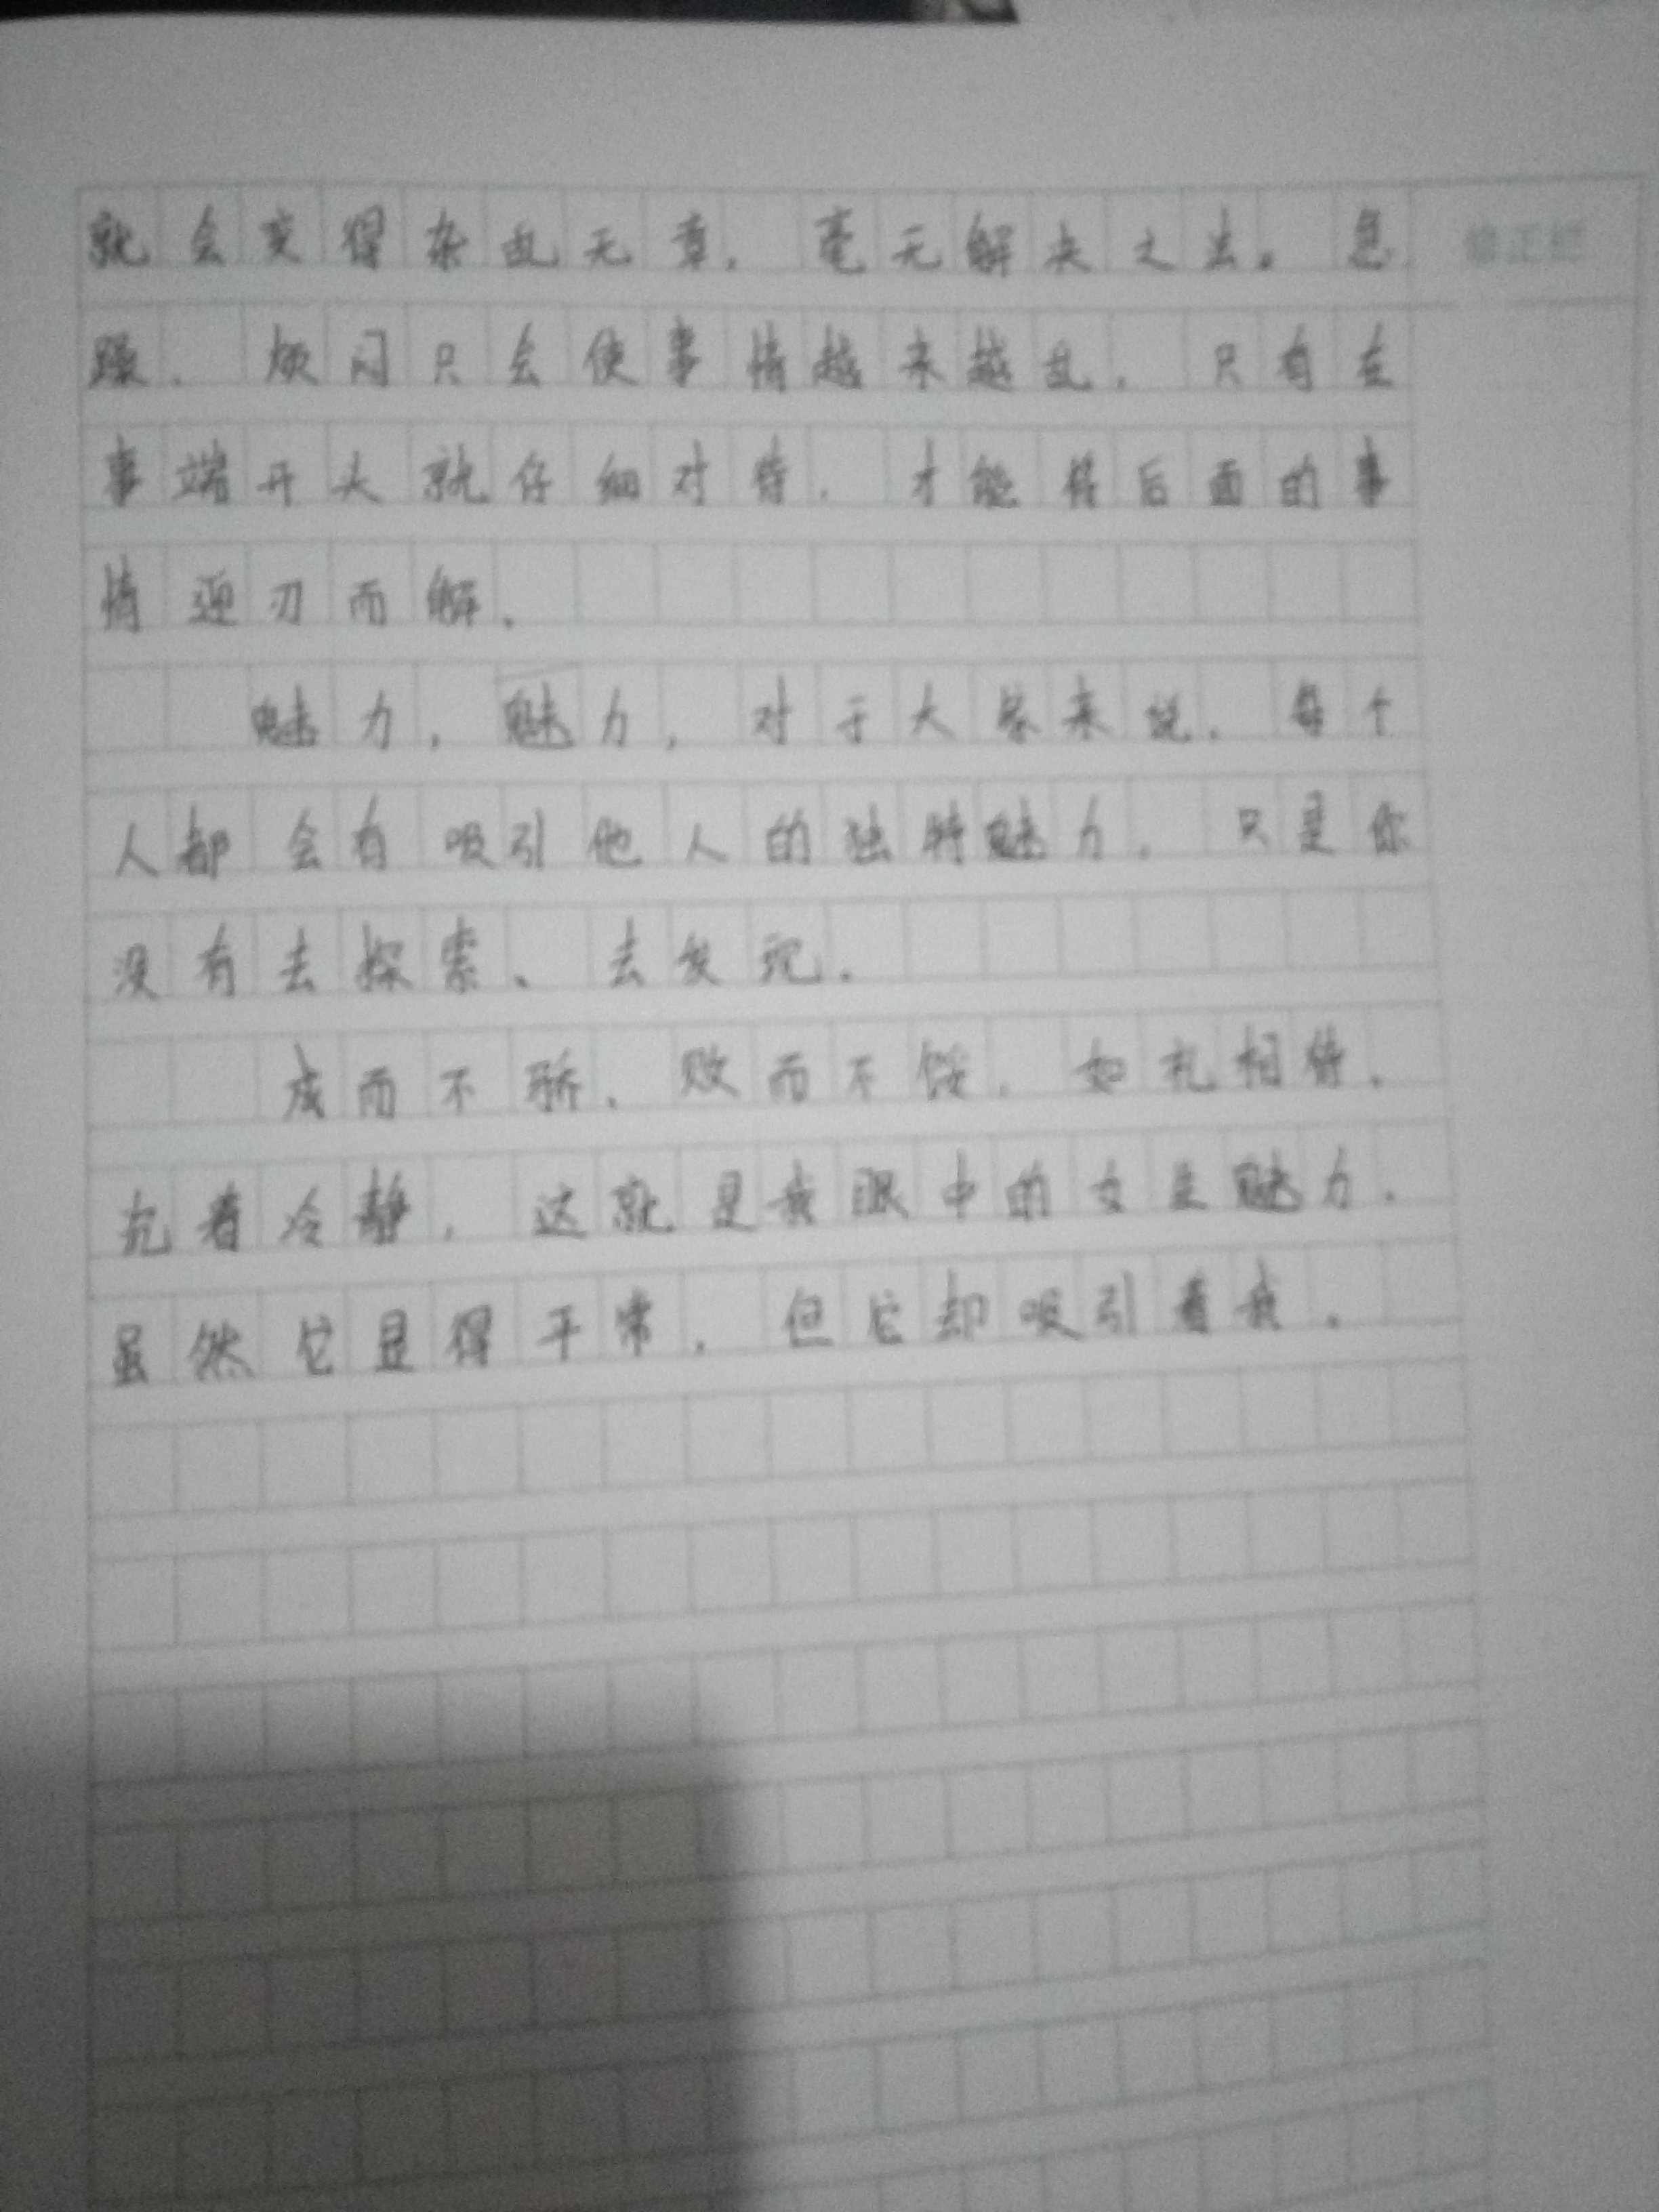 就会变得杂乱无章，毫无解决之法。急
躁、烦闷只会使事情越来越乱，只有在
事端开头就仔细对待，才能将后面的事
情迎刃而解。
魅力，魅力，对于大家来说，每个
人都会有吸引他人的独特魅力，只是你
没有去探索、去发现。
成而不骄、败而不馁，如礼相待、
沉着冷静，这就是我眼中的女生魅力。
虽然它显得平常，但它却吸引着我。
修正栏